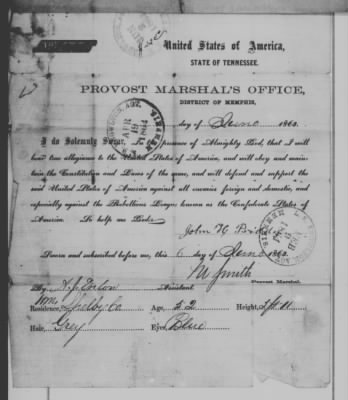 United States of America,
STATE OF TENNESSEE.
PROVOST MARSHAL'S OFFICE,
DISTRICT OF MEMPHIS,
day of June 1863.
I do Solemnly Swear, In presence of Almighty God, that I will
bear true allegiance to the United States of America, and will obey and maintain
the Constitution and Laws of the same, and will defend and support the
said United States of America against all enemies foreign and domestic, and
especially against the Rebellious League known as the Confederate States of
America. So help me God.
John H
Sworn and subscribed before me, this 6 day of June 1863.
M Smith
Provost Marshal.
By Assistant
Residence, Shelby Co Age, 52 Height, 5 ft 11
Hair, Grey Eyes Blue
APR
19
1864
MEMPHIS